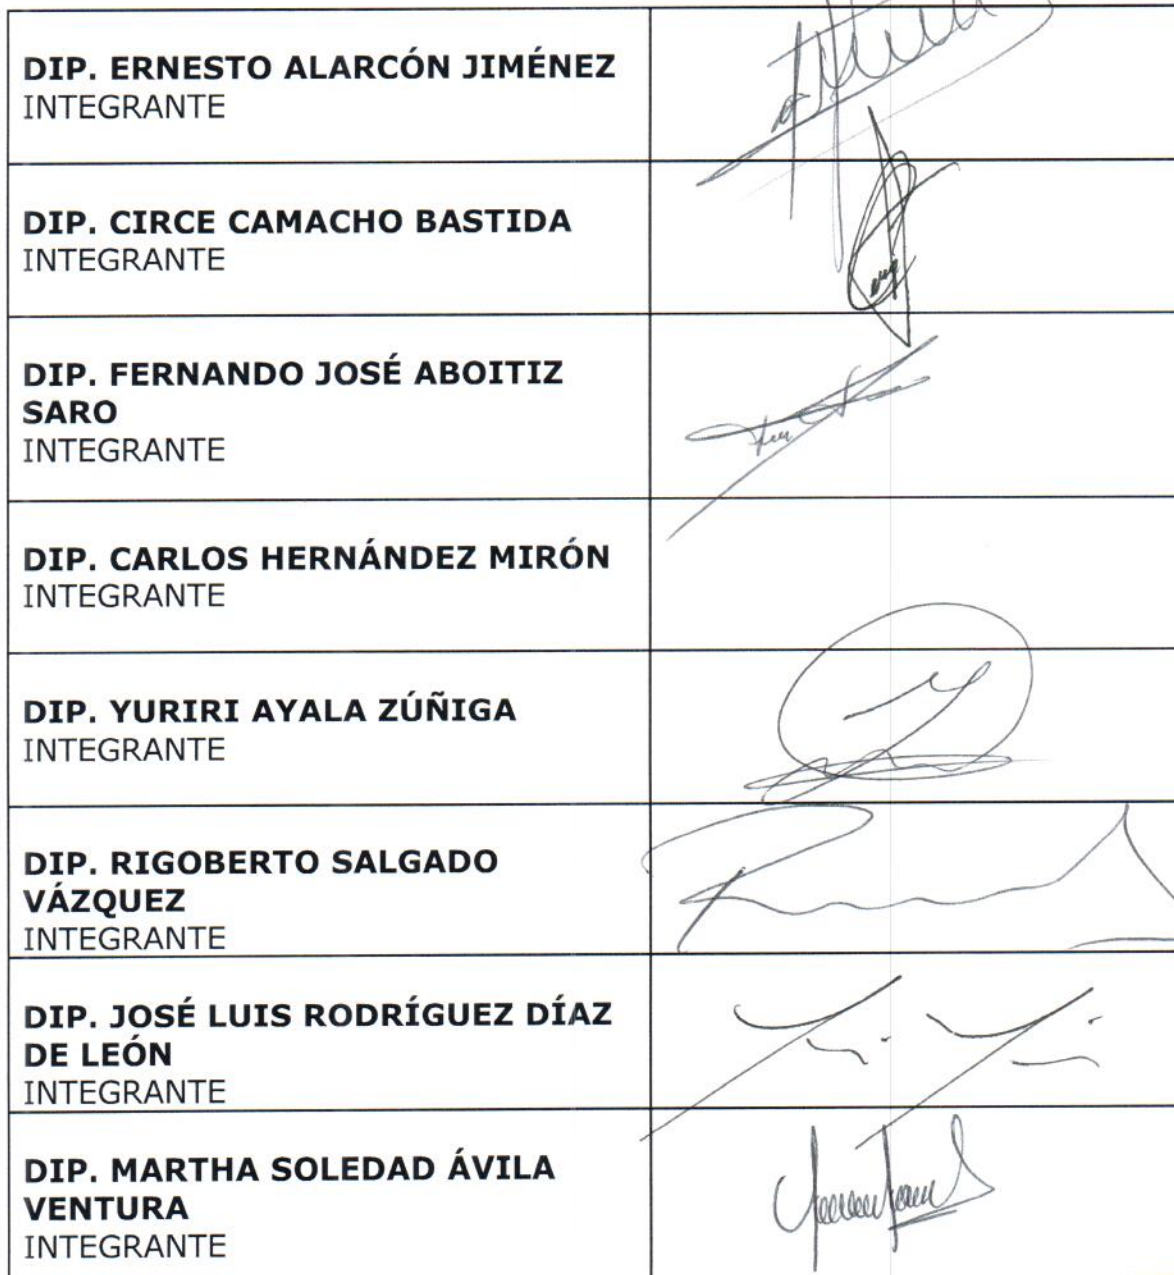 DIP. ERNESTO ALARCÓN JIMÉNEZ
INTEGRANTE
DIP. CIRCE CAMACHO BASTIDA
INTEGRANTE
DIP. FERNANDO JOSÉ ABOITIZ
SARO
INTEGRANTE
DIP. CARLOS HERNÁNDEZ MIRÓN
INTEGRANTE
DIP. YURIRI AYALA ZÚÑIGA
INTEGRANTE
DIP. RIGOBERTO SALGADO
VÁZQUEZ
INTEGRANTE
DIP. JOSÉ LUIS RODRÍGUEZ DÍAZ
DE LEÓN
INTEGRANTE
DIP. MARTHA SOLEDAD ÁVILA
VENTURA
INTEGRANTE